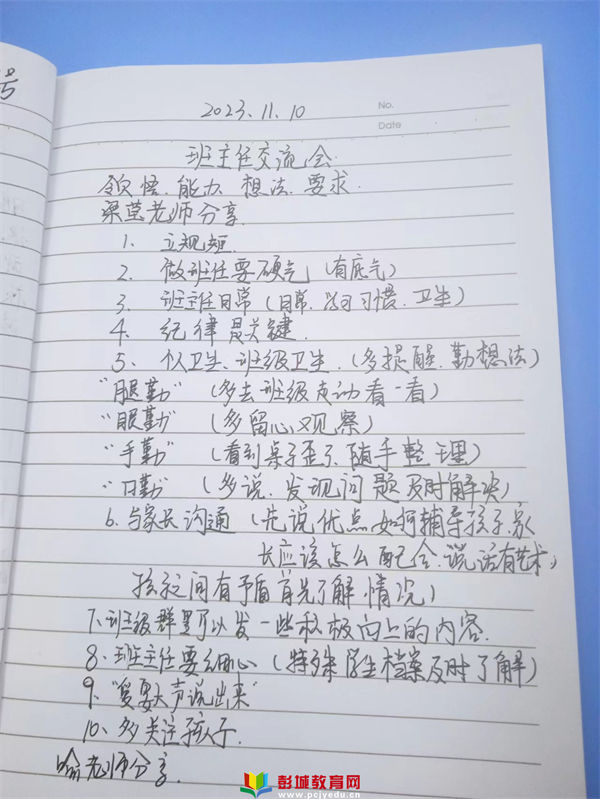 号
2023.11.10
No.
Date
班主任交流会
领悟.能力.想法.要求.
梁莹老师分享
1、立规矩
2、做班任要硬气(有底气)
3、班主任日常(日常.学习习惯.卫生)
4、纪律是关键.
5、个人卫生、班级卫生.(多提醒.勤想法)
"腿勤"(多去班级走动看一看)
"眼勤"(多留心观察)
"手勤"(看到桌子歪了、随手整理)
"口勤"(多说、发现问题及时解决)
6、与家长沟通(先说优点如何辅导孩子.家
长应该怎么配合.说话有艺术,
孩子之间有矛盾首先了解情况)
7、班级群里可以发一些积极向上的内容.
8、班主任要细心(特殊学生档案及时了解)
9、"爱要大声说出来"
10、多关注孩子.
老师分享.
彭城教育网
www.pcjyedu.cn